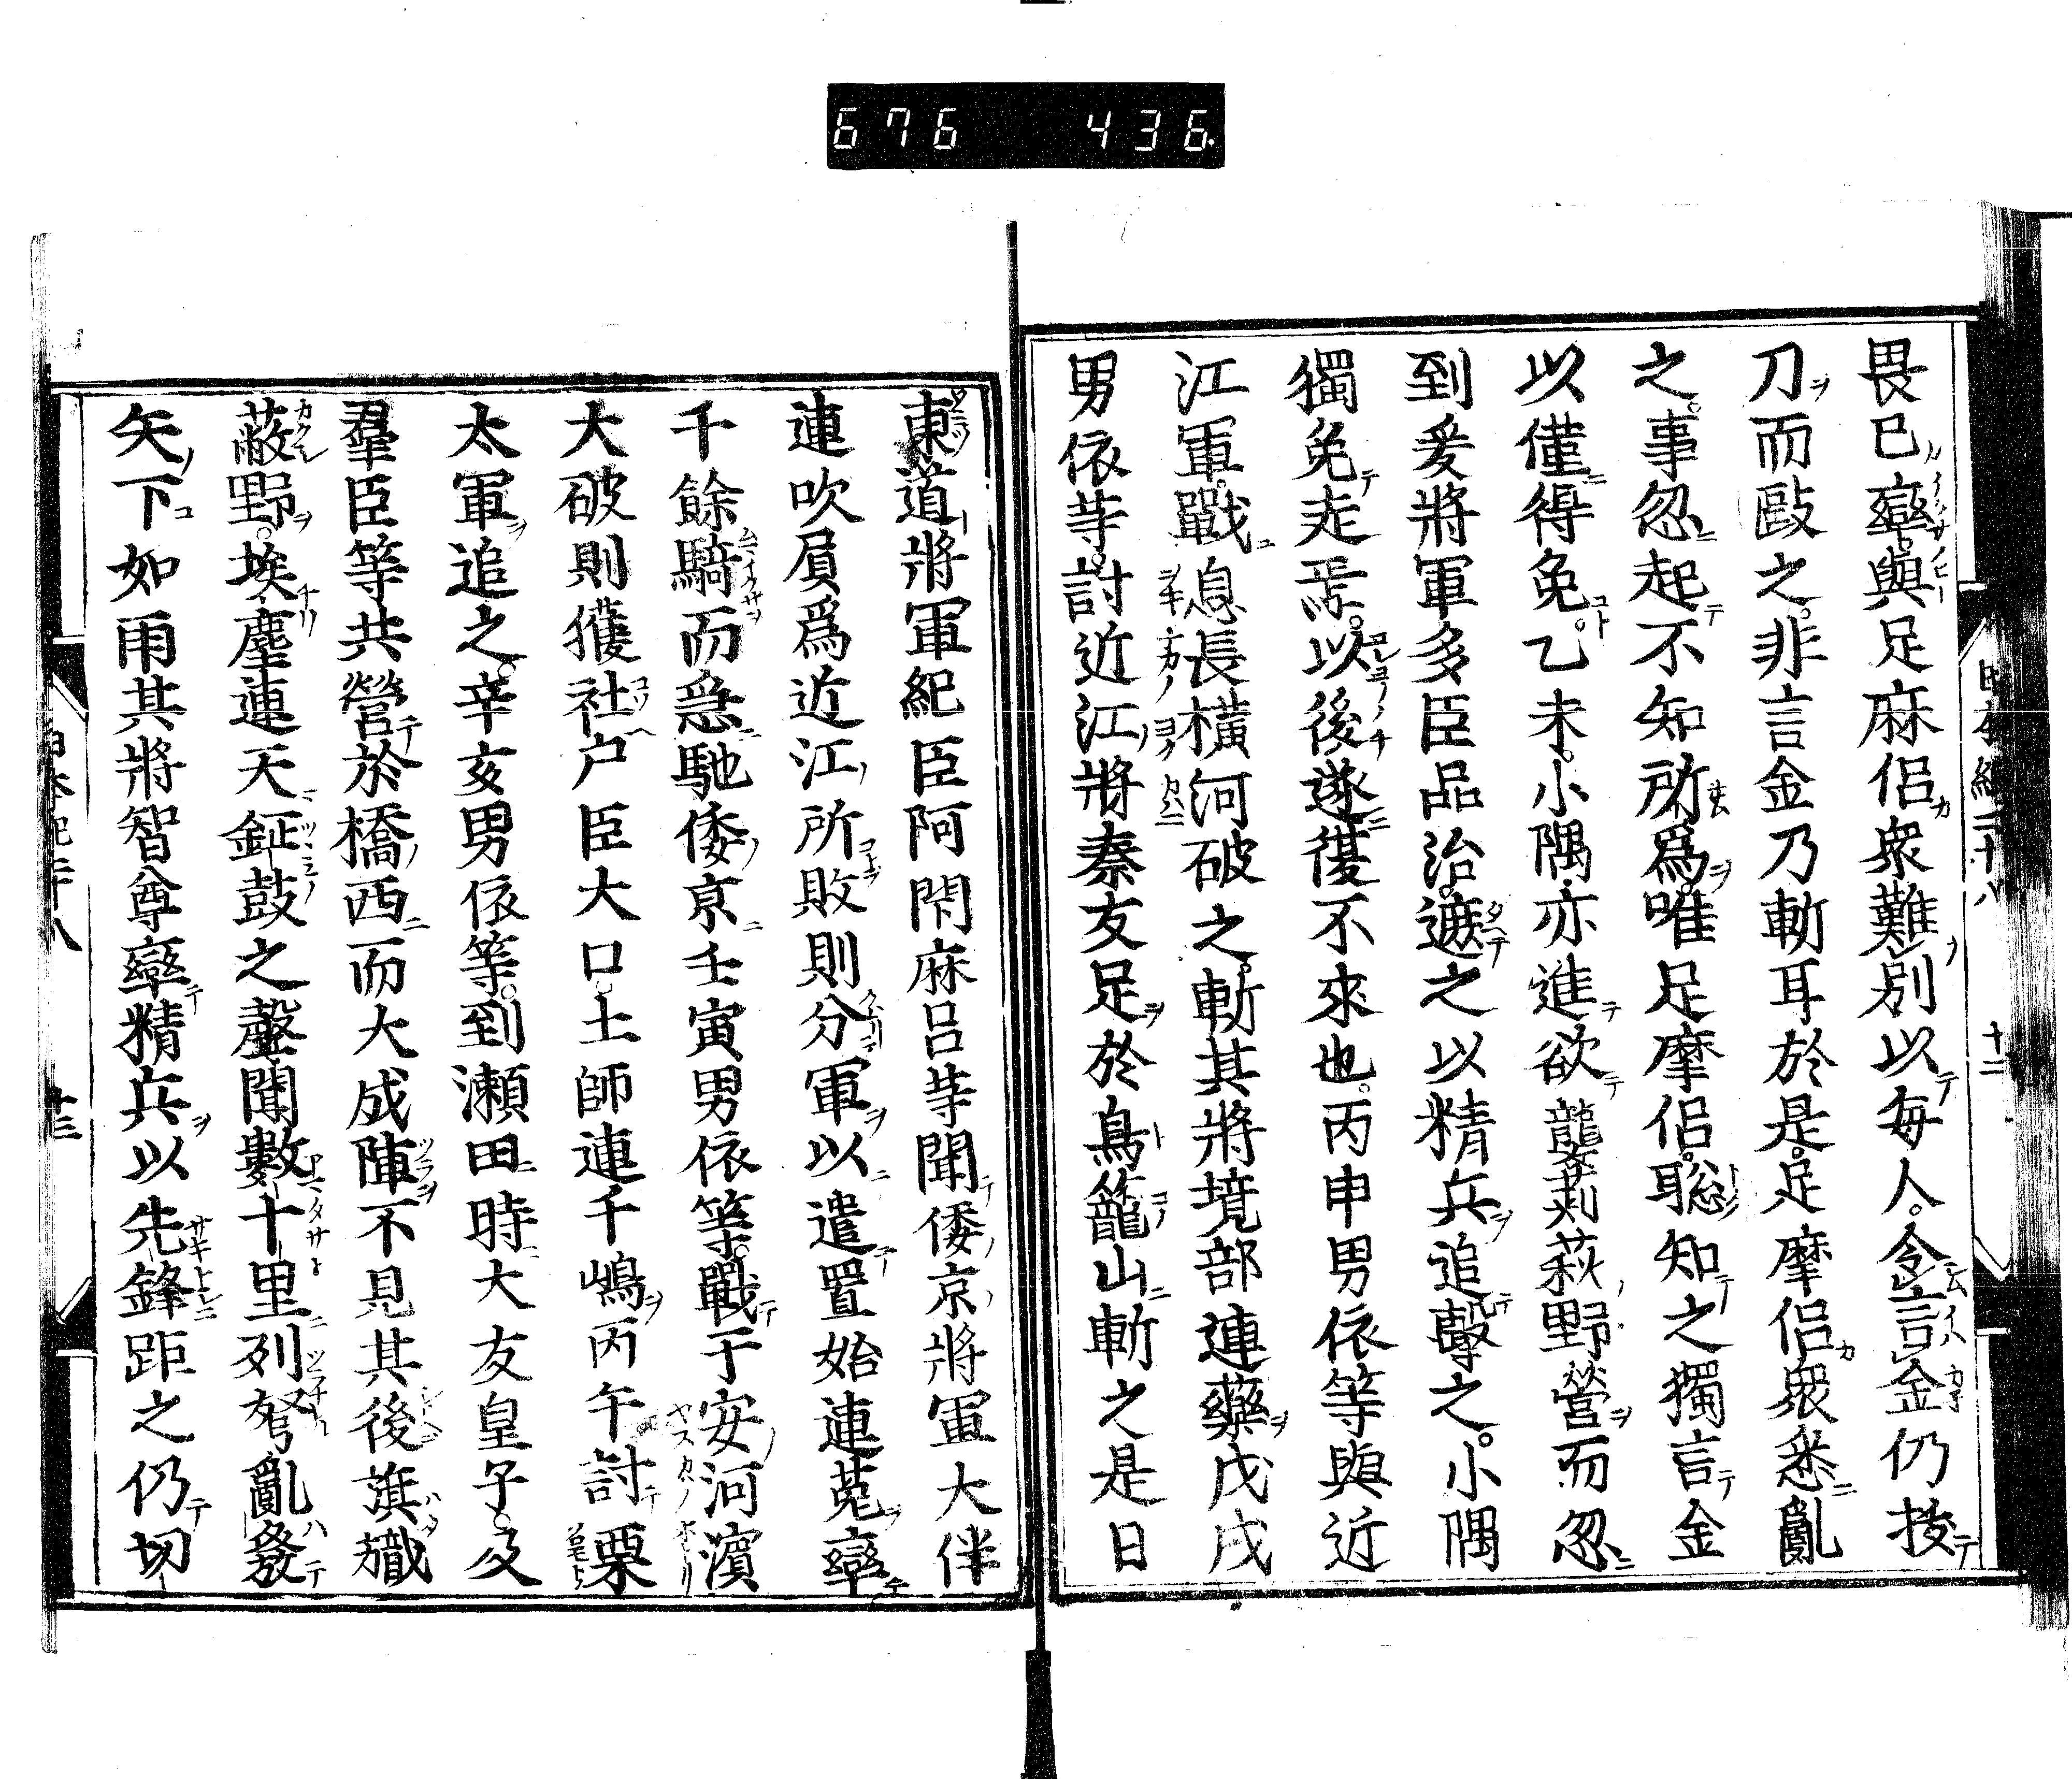 676 436
畏已率與足麻侶衆難別以毎人令言金仍拔
刀而敺之非言金乃斬耳於是足摩侶衆悉亂
之事忽起不知所爲唯足摩侶聡知之獨言金
以僅得免乙未小隅亦進欲襲莿萩野營而忽
到爰將軍多臣品治遮之以精兵追擊之小隅
獨免走焉以後遂復不來也丙申男依等與近
江軍戰息長横河破之斬其將境部連藥戊戌
男依等討近江將秦友足於鳥籠山斬之是日
東道將軍紀臣阿閇麻呂等聞倭京將軍大伴
連吹屓爲近江所敗則分軍以遣置始連菟率
千餘騎而急馳倭京壬寅男依等戰于安河濱
大破則獲社戸臣大口土師連千嶋丙午討栗
太軍追之辛亥男依等到瀬田時大友皇子及
羣臣等共營於橋西而大成陣不見其後旗幟
蔽野埃塵連天鉦鼓之聲聞數十里列弩亂發
矢下如雨其將智尊率精兵以先鋒距之仍切